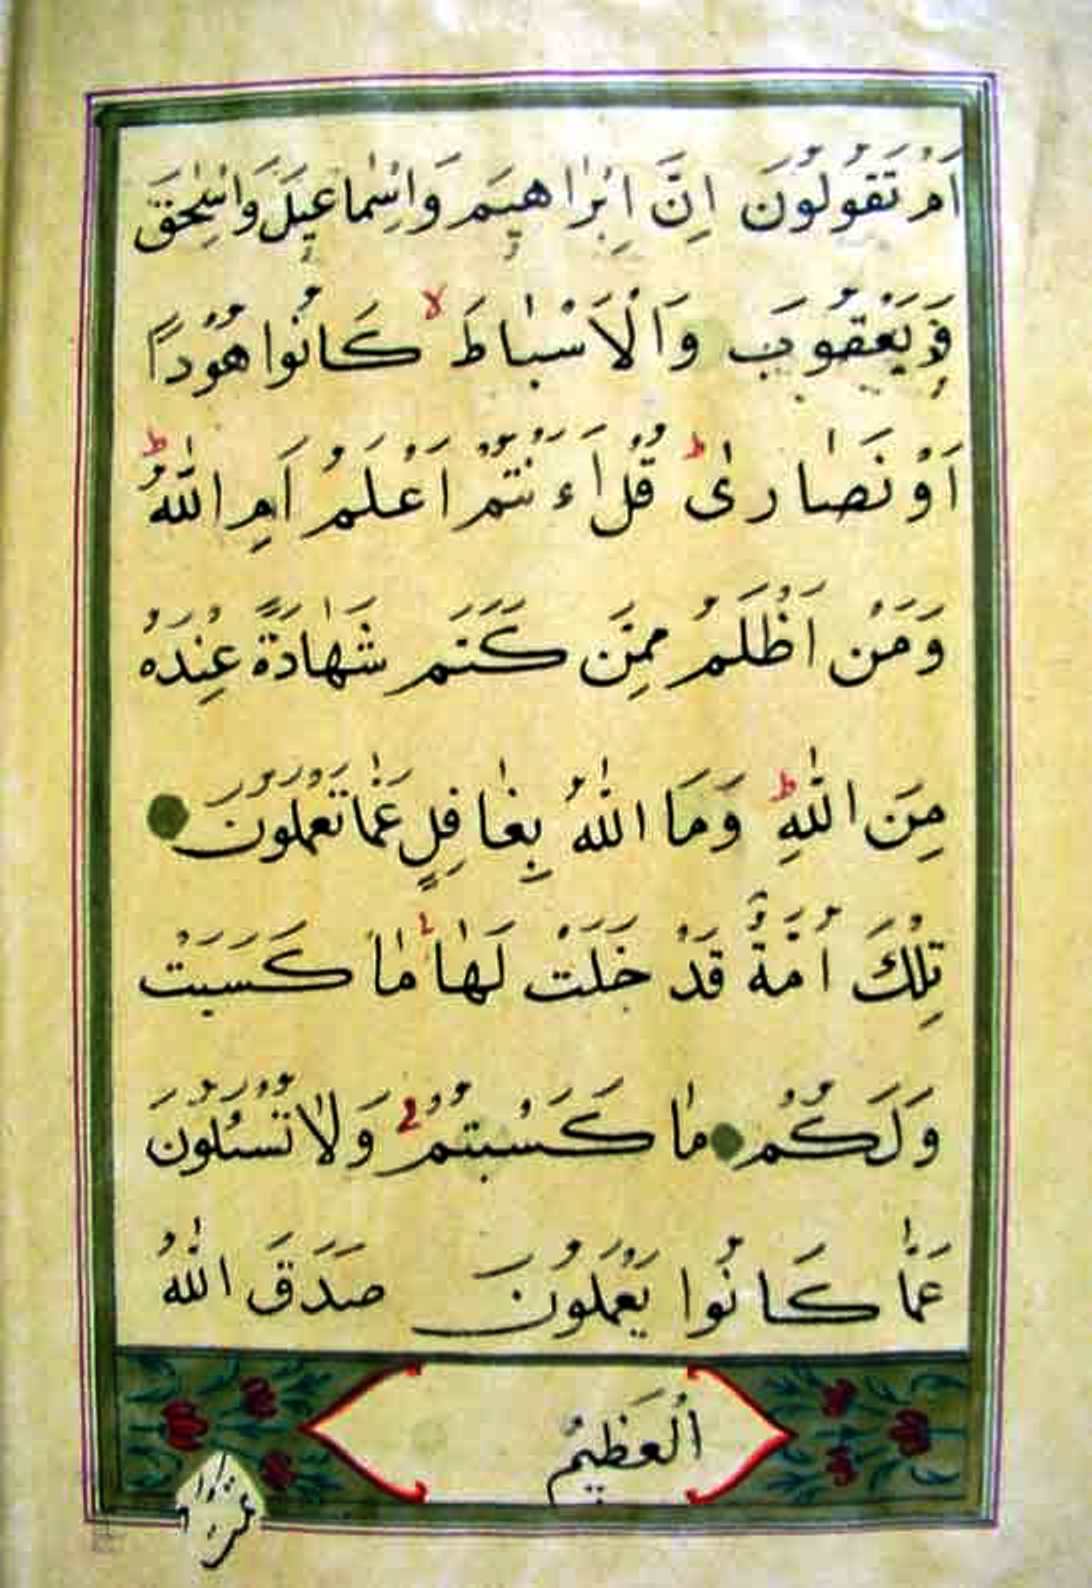 اَمْ تَقُولُونَ اِنَّ اِبْرٰاهٖيمَ وَاِسْمٰاعٖيلَ وَاِسْحٰقَ
وَيَعْقُوبَ وَالْاَسْبٰاطَ كَانُوا هُودًا
اَوْ نَصٰارٰى قُلْ ءَاَنْتُمْ اَعْلَمُ اَمِ اللّٰهُ
وَمَنْ اَظْلَمُ مِمَّنْ كَتَمَ شَهٰادَةً عِنْدَهُ
مِنَ اللّٰهِ وَمَا اللّٰهُ بِغٰافِلٍ عَمّٰا تَعْمَلُونَ
تِلْكَ اُمَّةٌ قَدْ خَلَتْ لَهٰا مٰا كَسَبَتْ
وَلَكُمْ مٰا كَسَبْتُمْ وَلٰا تُسْئَلُونَ
عَمّٰا كَانُوا يَعْمَلُونَ صَدَقَ اللّٰهُ
الْعَظٖيمُ